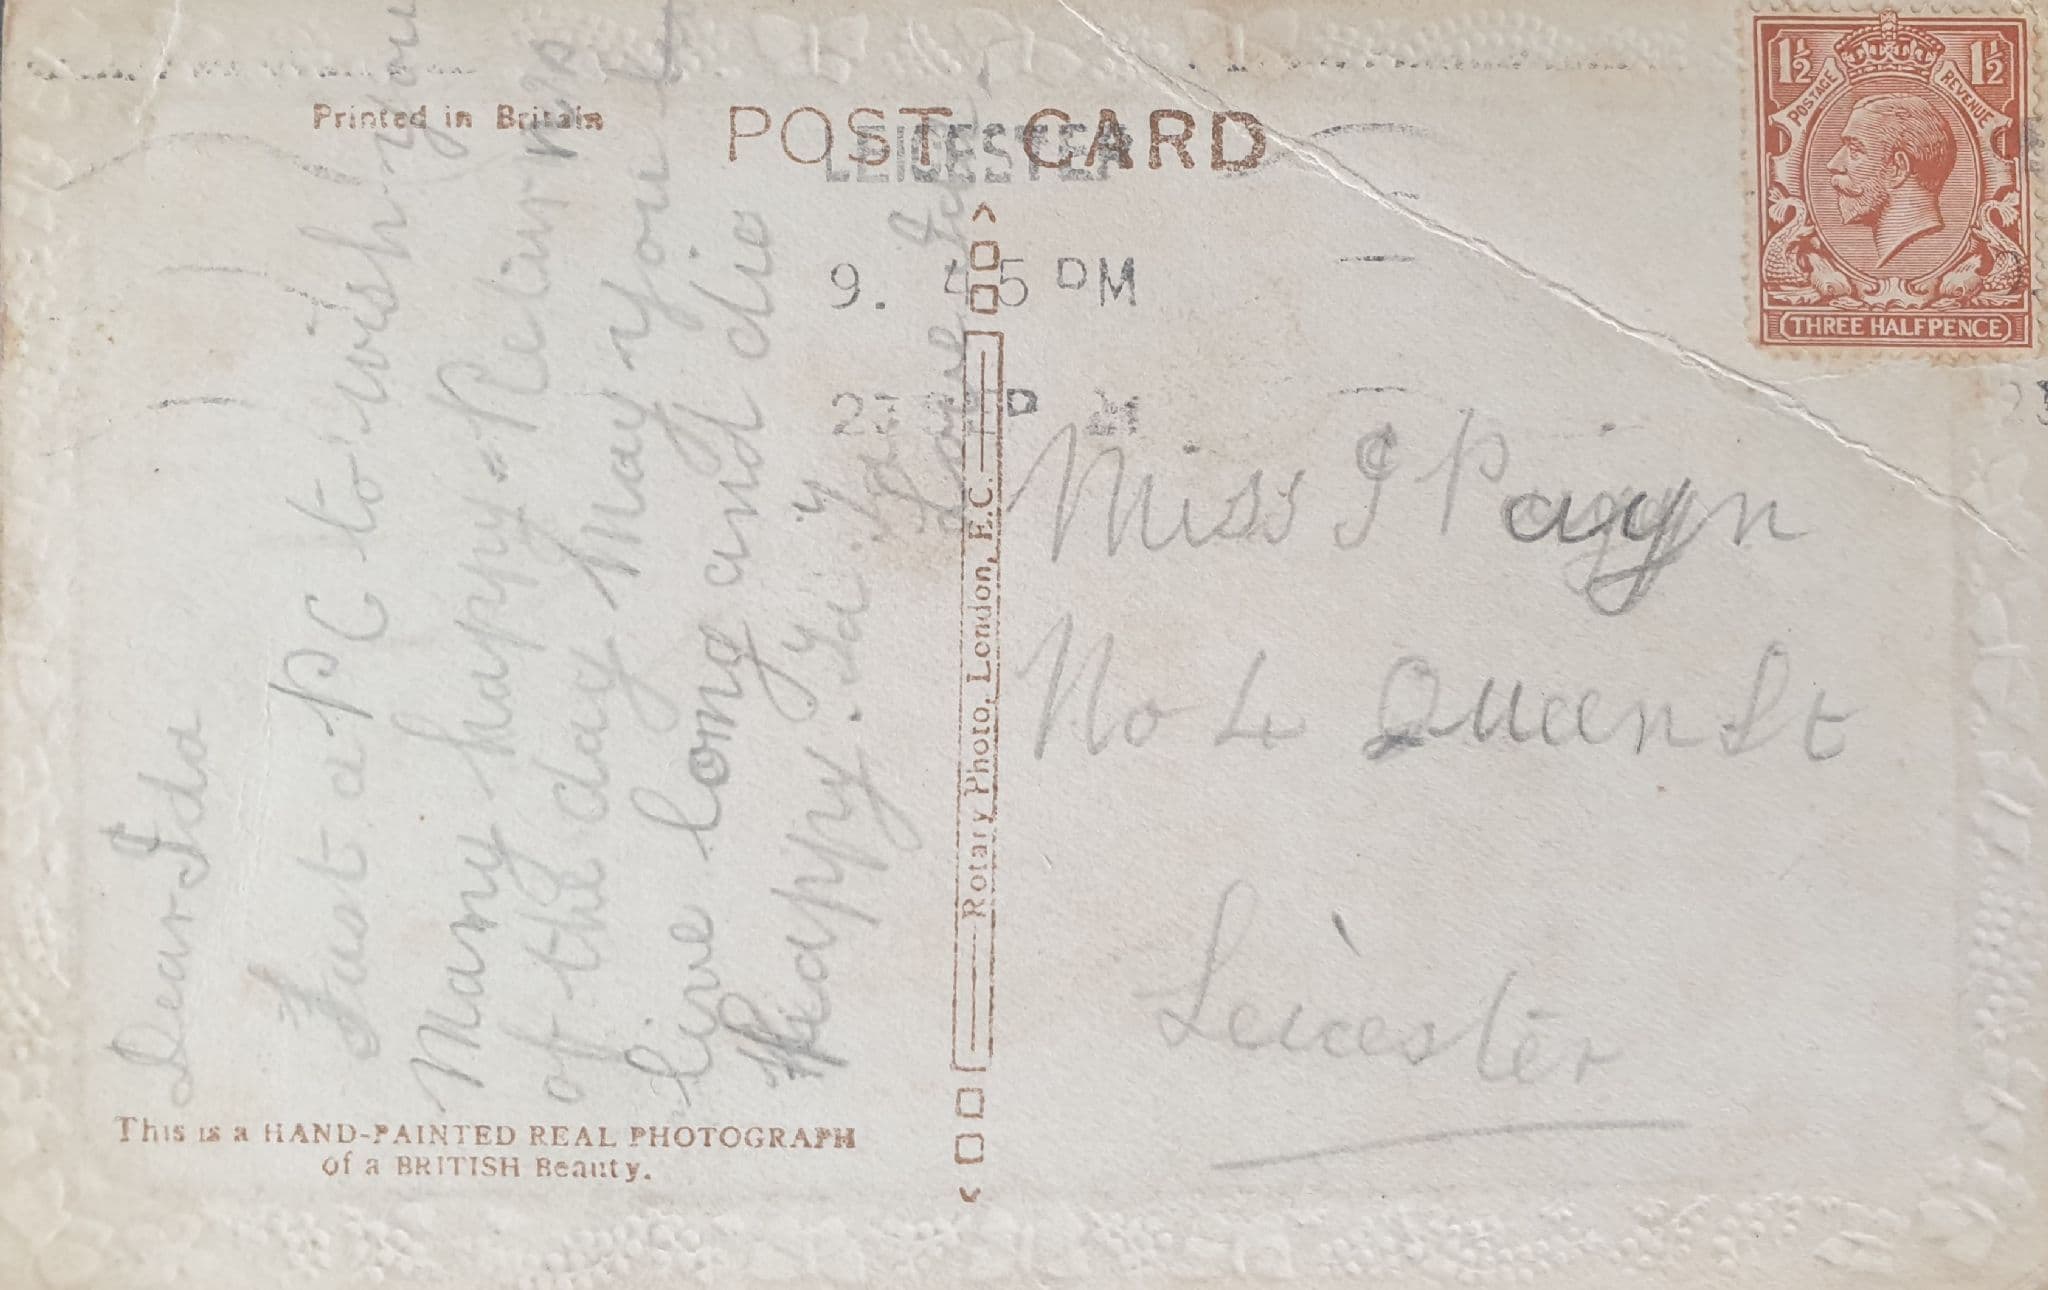 Printed in Britain
POST CARD
LEICESTER
9. 45 PM
1½ 1½
POSTAGE REVENUE
THREE HALFPENCE
Dear Ida
Just a PC to wish you
Many happy = Returns
of the day May you
live long and die
Happy.
Rotary Photo, London, E.C.
Miss I Payn
No 4 Queen St
Leicester
This is a HAND-PAINTED REAL PHOTOGRAPH
of a BRITISH Beauty.